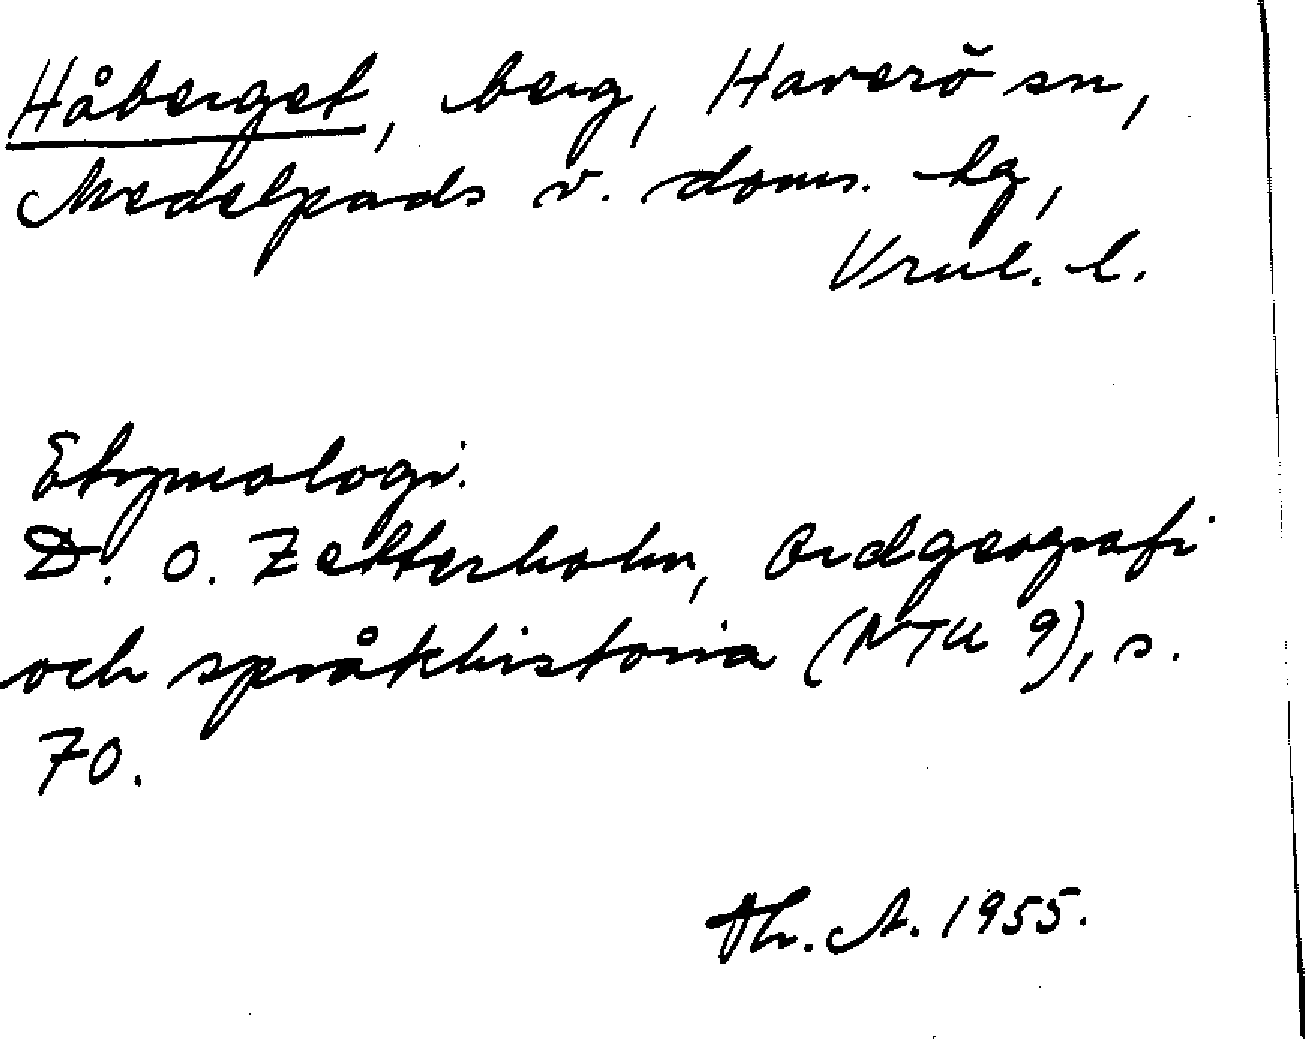 Håberget, berg, Haverö sn,
Medelpads v. doms. hg,
Vrnl. l.
Etymologi.
D. O. Zetterholm, Ordgeografi
och språkhistoria (NTU 9), s.
70.
Th. A. 1955.